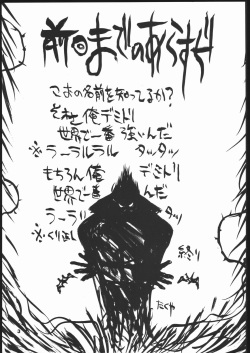 前回までのあらすじ
この名前を知ってるか?
それと俺デミトリ
世界で一番強いんだ
※ラーラルラル タッタッ
もちろん俺 デミトリ
世界で一番 んだ
ラーラル タッ
※くりかえし
終り
たくや